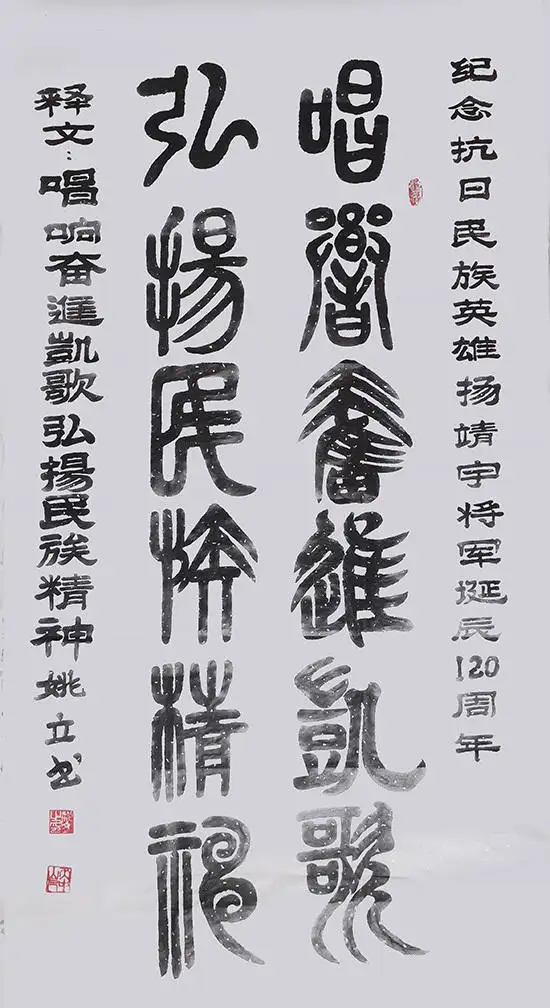 纪念抗日民族英雄扬靖宇将军诞辰120周年
唱響奮進凱歌
弘揚民族精神
释文：唱响奋進凱歌弘揚民族精神 姚立书